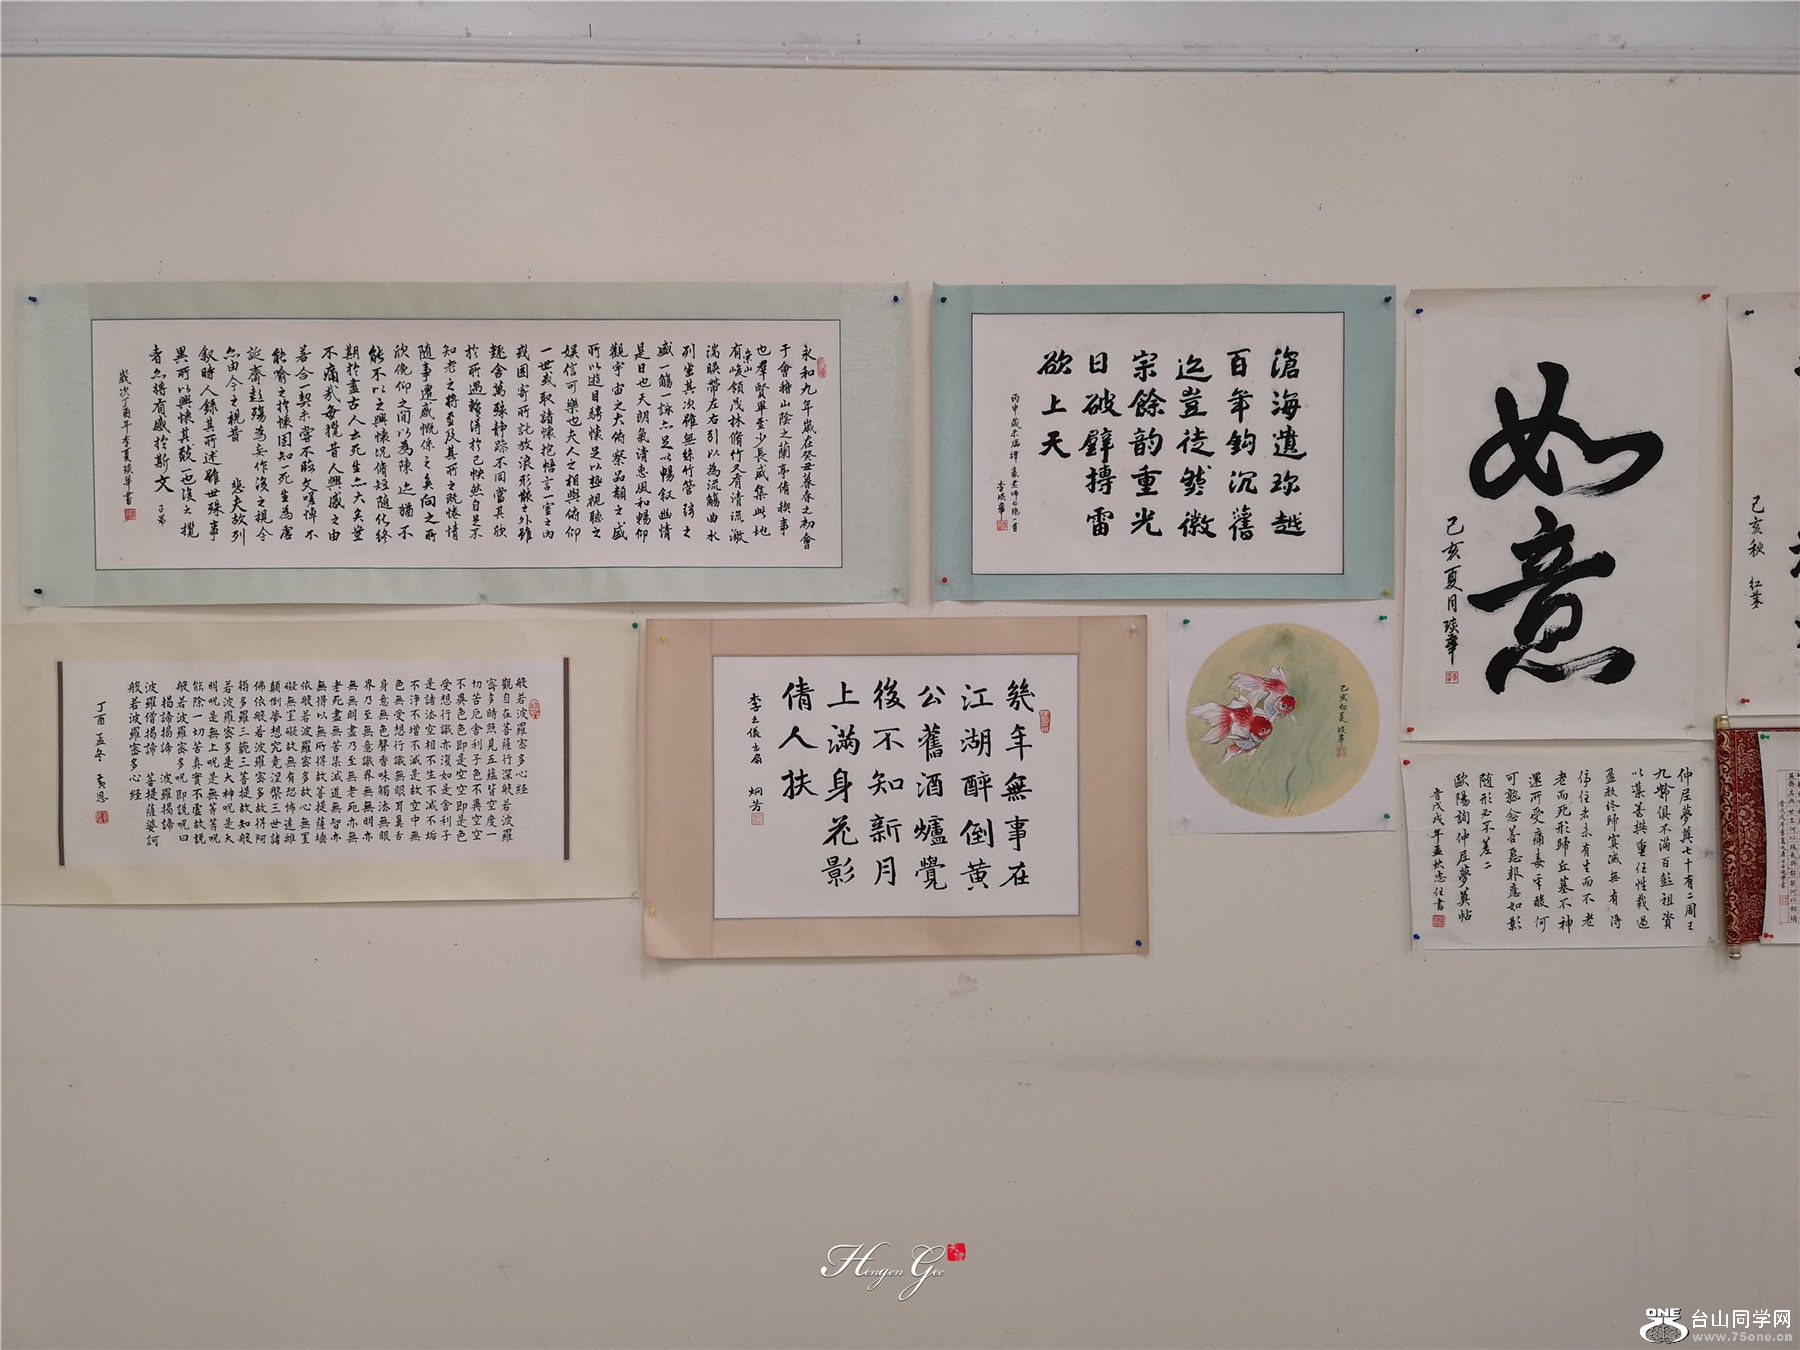 永和九年歲在癸丑暮春之初會
于會稽山陰之蘭亭脩稧事
也羣賢畢至少長咸集此地
有崇山峻領茂林脩竹又有清流激
湍暎帶左右引以為流觴曲水
列坐其次雖無絲竹管弦之
盛一觴一詠亦足以暢叙幽情
是日也天朗氣清惠風和暢仰
觀宇宙之大俯察品類之盛
所以遊目騁懷足以極視聽之
娛信可樂也夫人之相與俯仰
一世或取諸懷抱悟言一室之內
或因寄所託放浪形骸之外雖
趣舍萬殊靜躁不同當其欣
於所遇蹔得於己怏然自足不
知老之將至及其所之既惓情
隨事遷感慨係之矣向之所
欣俛仰之間以為陳迹猶不
能不以之興懷況脩短隨化終
期於盡古人云死生亦大矣豈
不痛哉每攬昔人興感之由
若合一契未嘗不臨文嗟悼不
能喻之於懷固知一死生為虛
誕齊彭殤為妄作後之視今
亦由今之視昔 悲夫故列
叙時人錄其所述雖世殊事
異所以興懷其致一也後之攬
者亦將有感於斯文
歲次丁酉年季夏琰華書
滄海遺珍越
百年鈎沉舊
迄豈徒然徽
宗餘韵重光
日破壁搏雷
欲上天
李琰華
如意
己亥夏月琰華
己亥秋 紅葉
般若波羅密多心經
觀自在菩薩行深般若波羅
密多時照見五蘊皆空度一
切苦厄舍利子色不異空空
不異色色即是空空即是色
受想行識亦復如是舍利子
是諸法空相不生不滅不垢
不淨不增不減是故空中無
色無受想行識無眼耳鼻舌
身意無色聲香味觸法無眼
界乃至無意識界無無明亦
無無明盡乃至無老死亦無
老死盡無苦集滅道無智亦
無得以無所得故菩提薩埵
依般若波羅密多故心無罣
礙無罣礙故無有恐怖遠離
顛倒夢想究竟涅槃三世諸
佛依般若波羅密多故得阿
耨多羅三藐三菩提故知般
若波羅密多是大神呪是大
明呪是無上呪是無等等呪
能除一切苦真實不虛故說
般若波羅密多呪即說呪曰
揭諦揭諦 波羅揭諦
波羅僧揭諦 菩提薩婆訶
般若波羅密多心經
丁酉孟冬 黃恩
幾年無事在
江湖醉倒黃
公舊酒爐覺
後不知新月
上滿身花影
倩人扶
己亥初夏琰華
仲尼夢奠七十有二周王
九齡俱不滿百彭祖資
以導善攝重任性裁過
盈數終歸寂滅無有得
停住者未有生而不老
老而死形歸丘墓不神
還所受痛毒辛酸何
可熟念善惡報應如影
隨形必不差二
歐陽詢仲尼夢奠帖
Hengen Gee
ONE
台山同学网
www.75one.cn